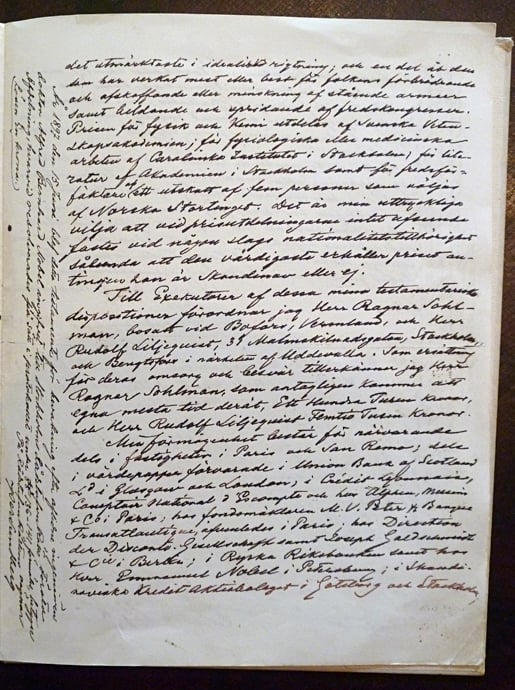 det utmärktaste i idealisk rigtning; och en del åt den
som har verkat mest eller best för folkens förbrödrande
och afskaffande eller minskning af stående armeer
samt bildande och spridande af fredskongresser.
Prisen för fysik och kemi utdelas af Svenska Veten-
skapsakademien; för fysiologiska eller medicinska
arbeten af Carolinska Institutet i Stockholm; för lite-
ratur af Akademien i Stockholm samt för fredsför-
fäktare af ett utskott af fem personer som väljas
af Norska Stortinget. Det är min uttryckliga
vilja att vid prisutdelningarne intet afseende
fästes vid någon slags nationalitetstillhörighet
sålunda att den värdigaste erhåller priset an-
tingen han är Skandinav eller ej.
Till Exekutorer af dessa mina testamentariska
dispositioner förordnar jag Herr Ragnar Sohl-
man, bosatt vid Bofors, Vermland, och Herr
Rudolf Liljequist, 31 Malmskilnadsgatan, Stockholm
och Bengtsfors i närheten af Uddevalla. Som ersättning
för deras omsorg och besvär tillerkänner jag Herr
Ragnar Sohlman, som antagligen kommer att
egna mesta tid deråt, Ett Hundra Tusen Kronor,
och Herr Rudolf Liljequist Femtio Tusen Kronor.
Min förmögenhet består för närvarande
dels i fastigheter i Paris och San Remo; dels
i värdepapper förvarade i Union Bank of Scotland
Ld i Glasgow och London; i Crédit Lyonnais,
Comptoir National d'Escompte och hos Alphen, Messin
& Co i Paris; hos fondmäklaren M. V. Peter & Banque
Transatlantique, äfvenledes i Paris; hos Direction
der Disconto Gesellschaft samt Joseph Goldschmidt
& Cie i Berlin; i Ryska Riksbanken samt hos
Herr Emmanuel Nobel i Petersburg; i Skandi-
naviska Kredit Aktiebolaget i Göteborg och Stockholm,